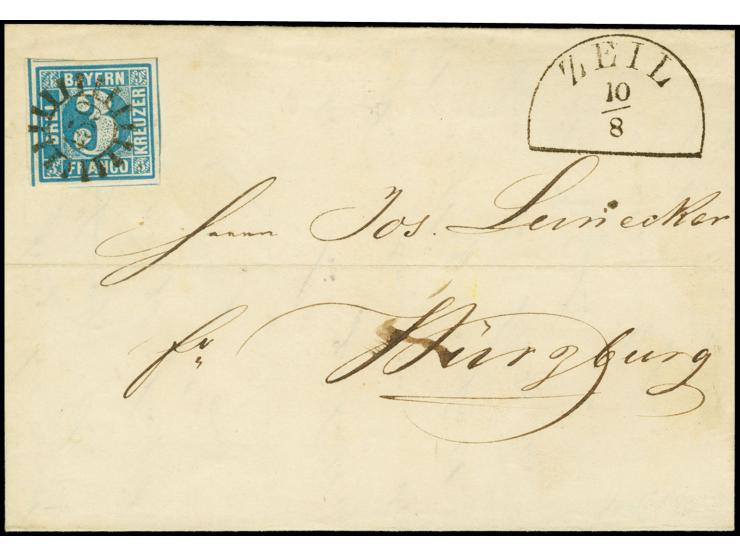 BAYERN
DREI
3
KREUZER
FRANCO
ZEIL
10
8
Herrn Jos. Leinecker
fr
Würzburg